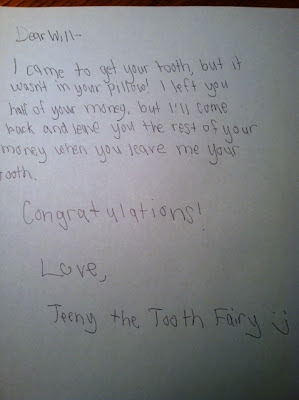 Dear Will--
I came to get your tooth, but it
wasn't in your pillow! I left you
half of your money, but I'll come
back and leave you the rest of your
money when you leave me your
tooth.
Congratulations!
Love,
Jeeny the Tooth Fairy :)